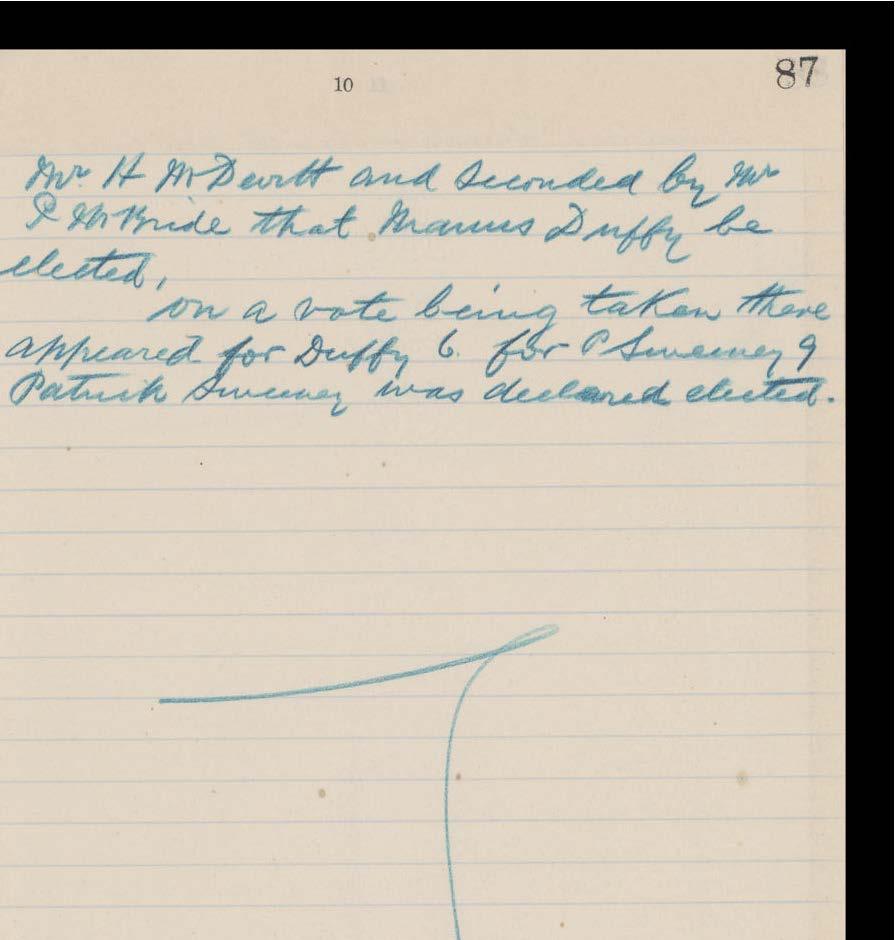 10
87
Mr. H McDevitt and seconded by Mr
P McBride that Manus Duffy be
elected,
on a vote being taken there
appeared for Duffy 6. for P Sweeney 9
Patrick Sweeney was declared elected.